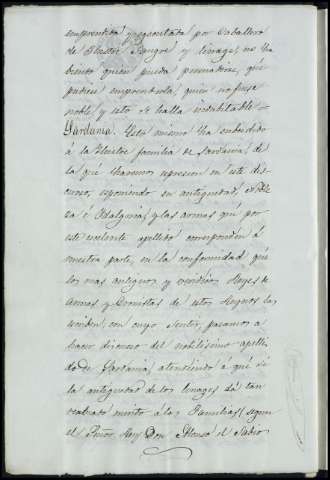 emprentida y egecutada por Caballero
de Ilustre Sangre y linage, no ha
biendo quien pueda persuadirse, que
pudiese emprenderla, quien no fuese
noble y esto se halla indubitable =
Sardania. Esto mismo ha sucedido
á la Ilustre familia de Sardania, de
la que haremos espresion en este dis-
curso, esponiendo su antiguedad, noble
za é Hidalguia, y las armas que por
este escelente apellido corresponden á
nuestra parte, en la conformidad que
los mas antiguos y verídicos Reyes de
Armas y Cronistas de estos Reynos las
escriben, con cuyo sentir, pasamos a
hacer discurso del nobilisimo apelli
do de Sardania, atendiendo á que si
la antiguedad de los linages dá tan
realzado merito á las Familias, segun
el Señor Rey Don Alonso el Sabio